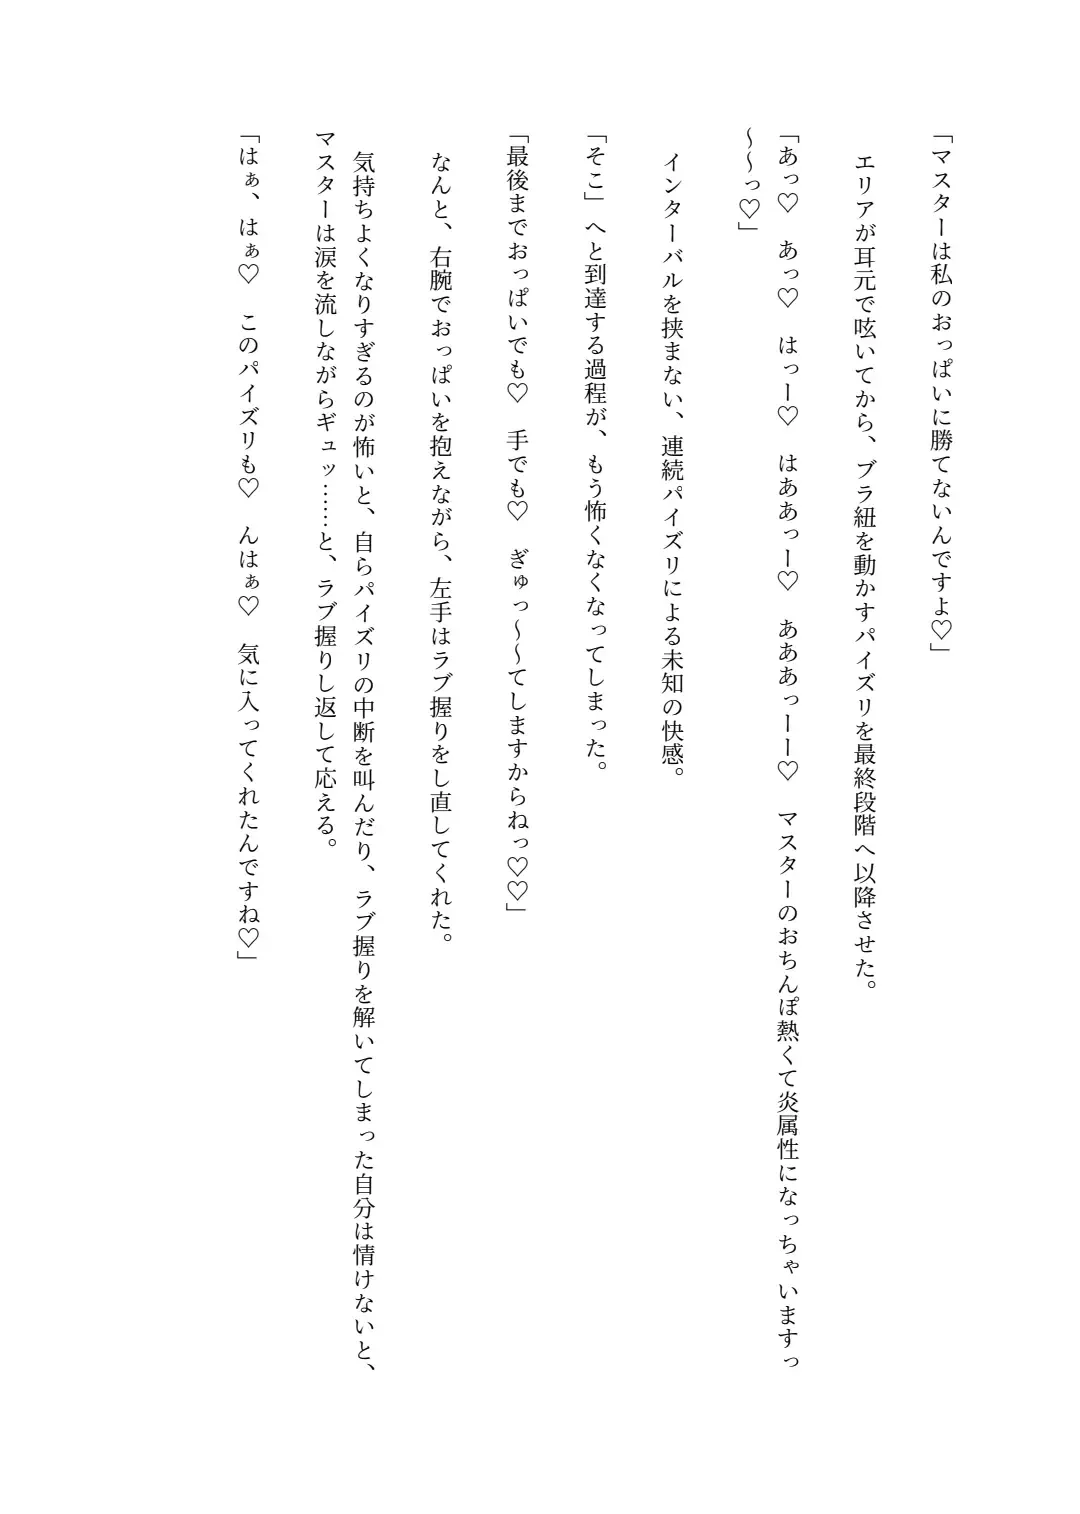 「マスターは私のおっぱいに勝てないんですよ♡」
　エリアが耳元で呟いてから、ブラ紐を動かすパイズリを最終段階へ以降させた。
「あっ♡　あっ♡　はっー♡　はああっー♡　あああっーー♡　マスターのおちんぽ熱くて炎属性になっちゃいますっ
～～っ♡」
　インターバルを挟まない、連続パイズリによる未知の快感。
「そこ」へと到達する過程が、もう怖くなくなってしまった。
「最後までおっぱいでも♡　手でも♡　ぎゅっ～～てしますからねっ♡♡」
　なんと、右腕でおっぱいを抱えながら、左手はラブ握りをし直してくれた。
　気持ちよくなりすぎるのが怖いと、自らパイズリの中断を叫んだり、ラブ握りを解いてしまった自分は情けないと、
マスターは涙を流しながらギュッ……と、ラブ握りし返して応える。
「はぁ、はぁ♡　このパイズリも♡　んはぁ♡　気に入ってくれたんですね♡」